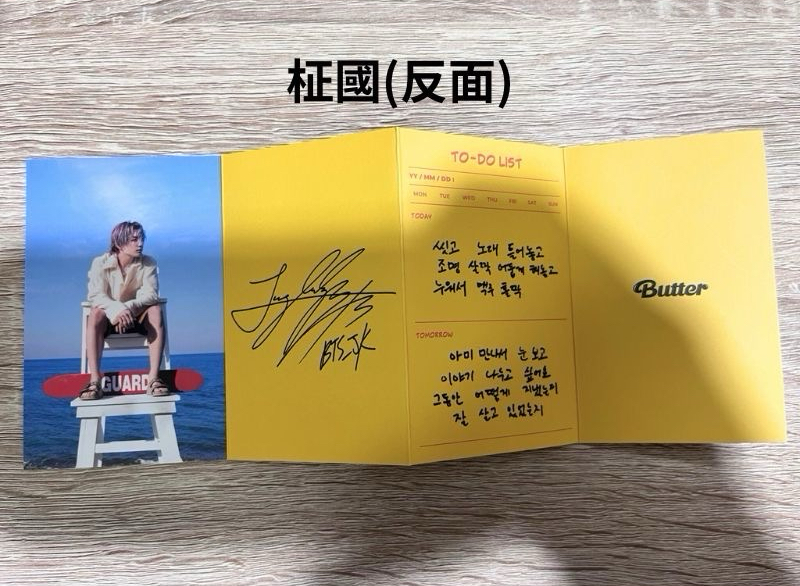 柾國(反面)
GUARD
BTS JK
TO-DO LIST
YY / MM / DD :
MON TUE WED THU FRI SAT SUN
TODAY
씻고 노래 틀어놓고
조명 살짝 어둡게 켜놓고
누워서 맥주 홀짝
TOMORROW
아미 만나서 눈 보고
이야기 나누고 싶어요
그동안 어떻게 지냈는지
잘 살고 있었는지
Butter